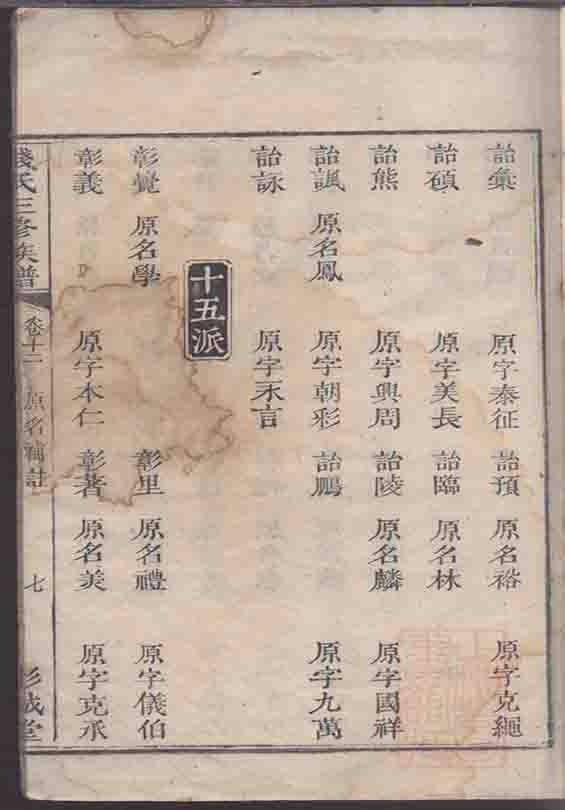 詒彙 原字泰征 詒預 原名裕 原字克繩
詒碩 原字美長 詒臨 原名林
詒熊 原字興周 詒陵 原名麟 原字國祥
詒諷 原名鳳 原字朝彩 詒鵬 原字九萬
詒詠 原字永言
十五派
彰覺 原名學 彰里 原名禮 原字儀伯
彰義 原字本仁 彰著 原名美 原字克承
錢氏三修族譜 卷十二 原名補註 七 彭城堂